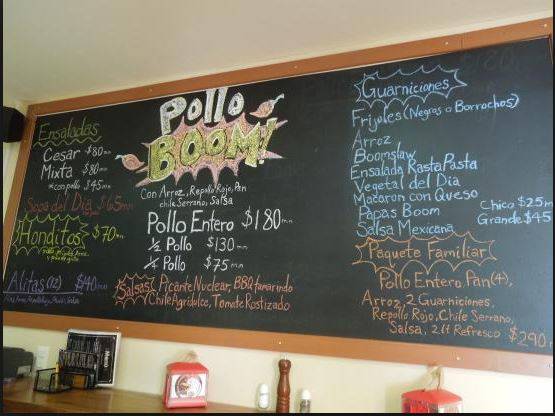 Ensaladas
Cesar $80mn
Mixta $80mn
*con pollo $45mn
Sopa del Dia $65mn
Honditos $70mn
Alitas (12)
Pollo
BOOM!
Con Arroz, Repollo Rojo, Pan
chile Serrano, Salsa
Pollo Entero $180mn
½ Pollo $130mn
¼ Pollo $75mn
Salsas: Picante Nuclear, BBQ tamarindo
Chile Agridulce, Tomate Rostizado
Guarniciones
Frijoles (Negros o Borrachos)
Arroz
Boomslaw
Ensalada Rasta Pasta
Vegetal del Dia
Macaron con Queso
Papas Boom
Salsa Mexicana
Chico $25m
Grande $45
Paquete Familiar
Pollo Entero Pan (4),
Arroz, 2 Guarniciones,
Repollo Rojo, Chile Serrano,
Salsa, 2 lt Refresco $290